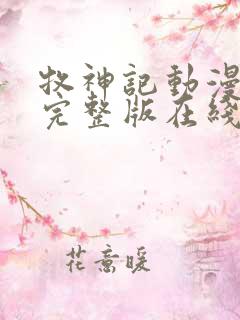 牧神記動漫
完整版在綫
花意暖